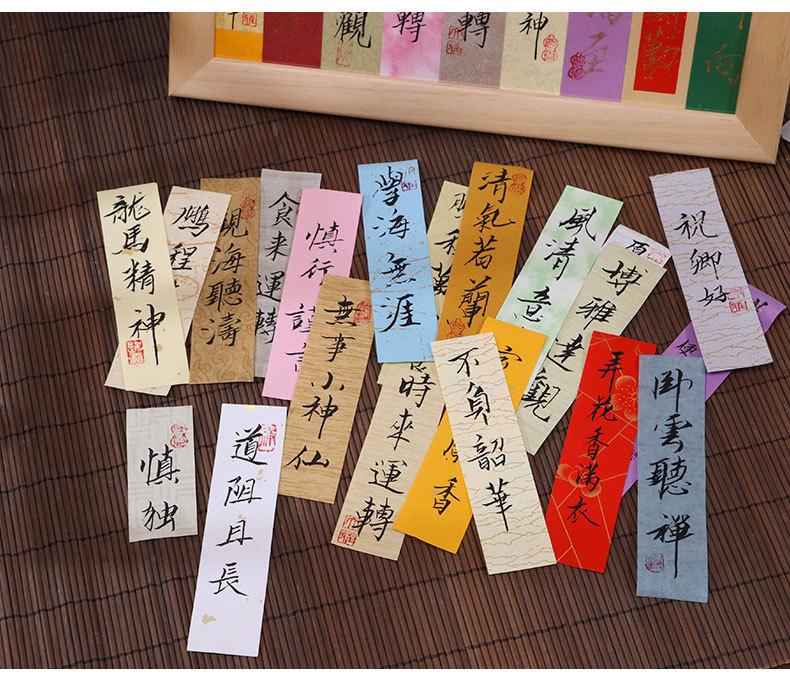 觀
轉
轉
神
龍馬精神
鵬程
觀海聽濤
食來運轉
慎行謹言
學海無涯
清氣若蘭
風清意
博雅達觀
祝卿好
慎独
道阻且長
無事小神仙
時來運轉
香
不負韶華
弄花香满衣
卧雲聽禪